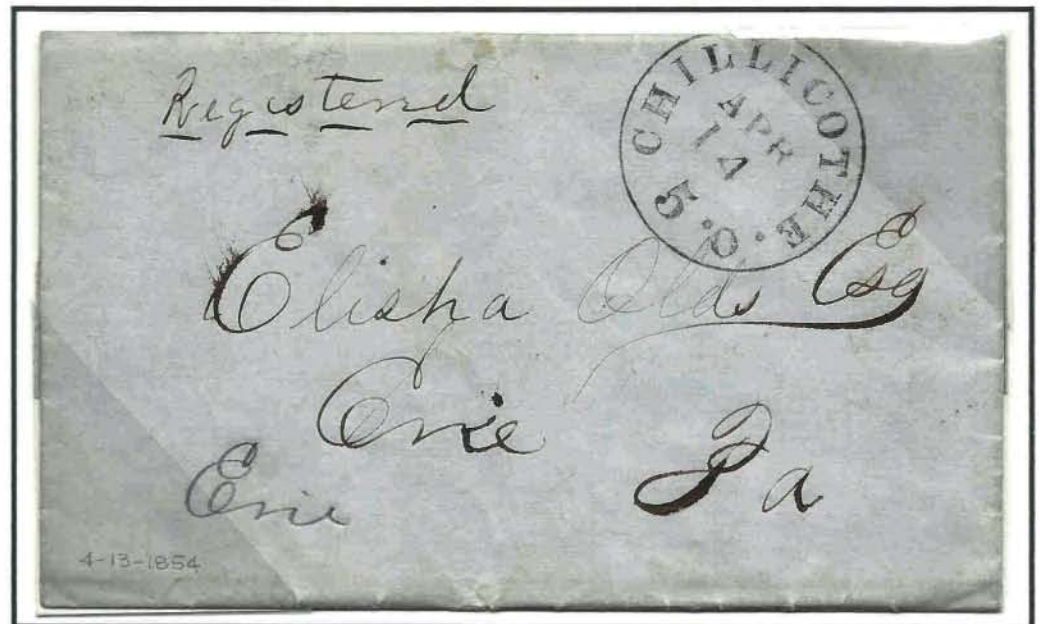 Registered
CHILLICOTHE. O. 5
APR
14
Elisha Olds Esq
Erie
Pa
Erie
4-13-1854